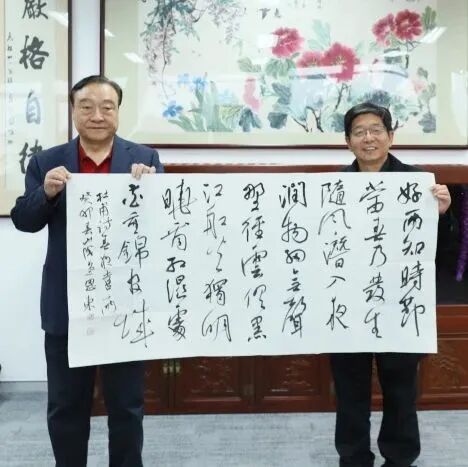 好雨知時節
當春乃發生
隨風潛入夜
潤物細無聲
野徑雲俱黑
江船火獨明
曉看紅濕處
花重錦官城
杜甫詩春夜喜雨
癸卯春
嚴格自律